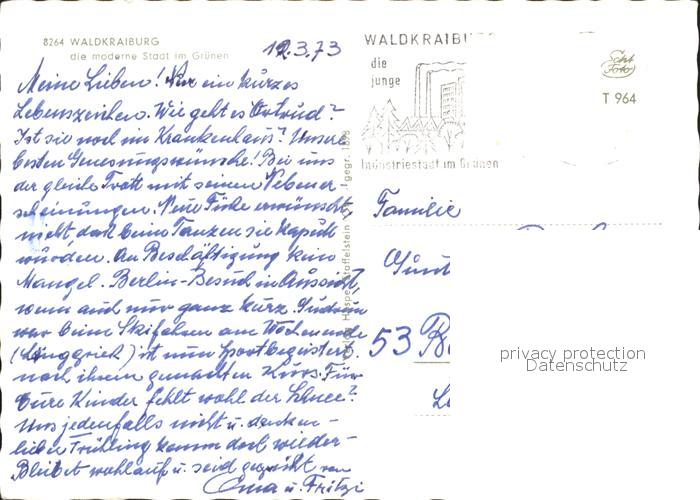 8264 WALDKRAIBURG
die moderne Stadt im Grünen
12.3.73
Meine Lieben! Nur ein kurzes
Lebenszeichen. Wie geht es Ortrud?
Ist sie noch im Krankenhaus? Unsere
besten Genesungswünsche! Bei uns
der gleiche Trott mit seinen Nebener-
scheinungen. Neue Füße erwünscht
nicht, dank beim Tanzen sie kaputt
würden. An Beschäftigung kein
Mangel. Berlin-Besuch in Aussicht,
wenn auch nur ganz kurz. Gudrun
war beim Skifahren am Wochenende
(Lenggries) ist nun sportbegeistert
nach ihrem gemachten Kurs. Für
Eure Kinder fehlt wohl der Schnee?
Uns jedenfalls nicht u. danken-
lieber Frühling komm doch wieder-
Bleibt wohlauf u. seid gegrüßt von
Erna u. Fritzi
WALDKRAIBU
die
junge
Industriestadt im Grünen
T 964
gegr. 1898
Familie
Günt
53 Bo
privacy protection
Datenschutz